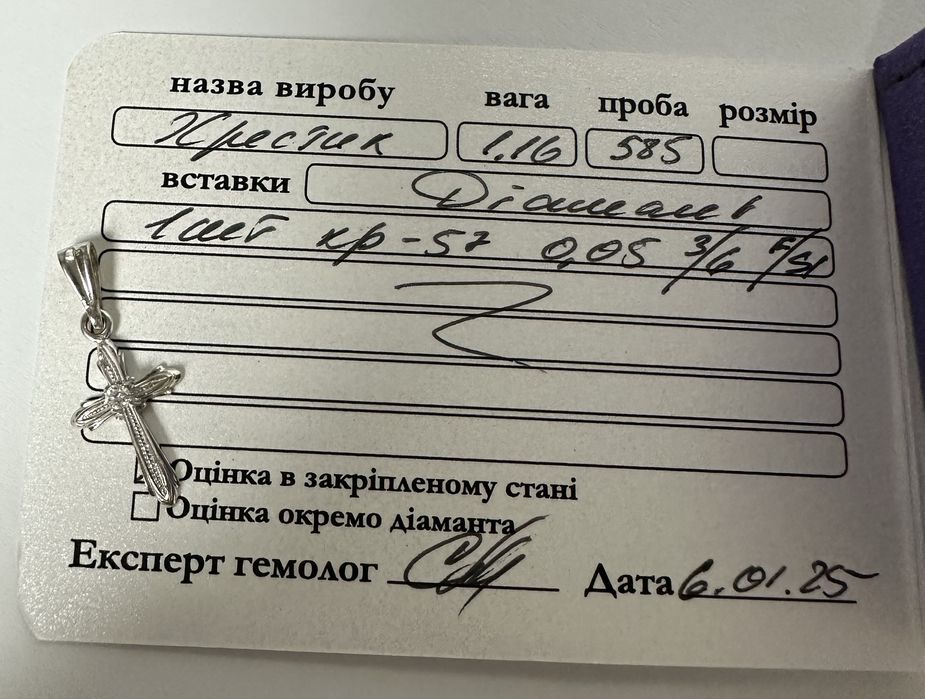 назва виробу вага проба розмір
Хрестик 1.16 585
вставки Діамант
1 шт кр-57 0,05 3/6 F/SI
Оцінка в закріпленому стані
Оцінка окремо діаманта
Експерт гемолог Дата 6.01.25